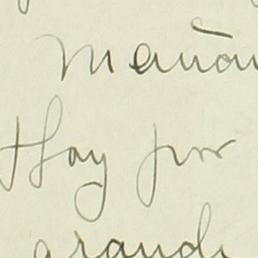 mañan
Hay por
grandi